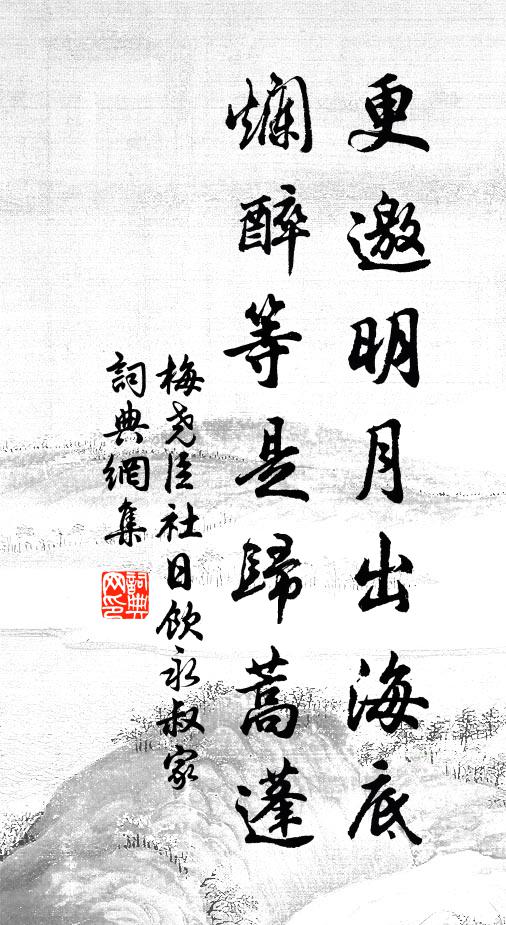 更邀明月出海底
爛醉等是歸蒿蓬
梅堯臣社日飲永叔家
詞典網集
詞典
网印